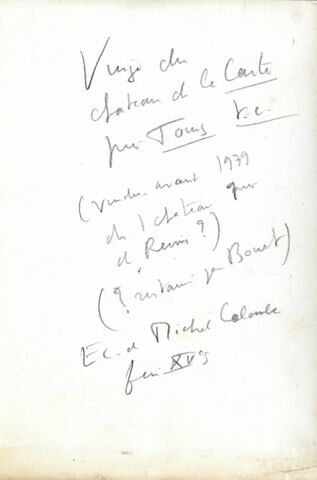 Vierge du
chateau de la Carte
par Tours I.-et-L.
(vendu avant 1939
du chateau
de Reims ?)
(? restauré par Bouet)
Ec. de Michel Colombe
fin XVes